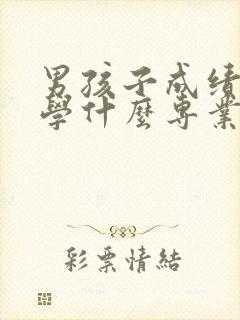 男孩子成绩
學什麼專業
彩票情結